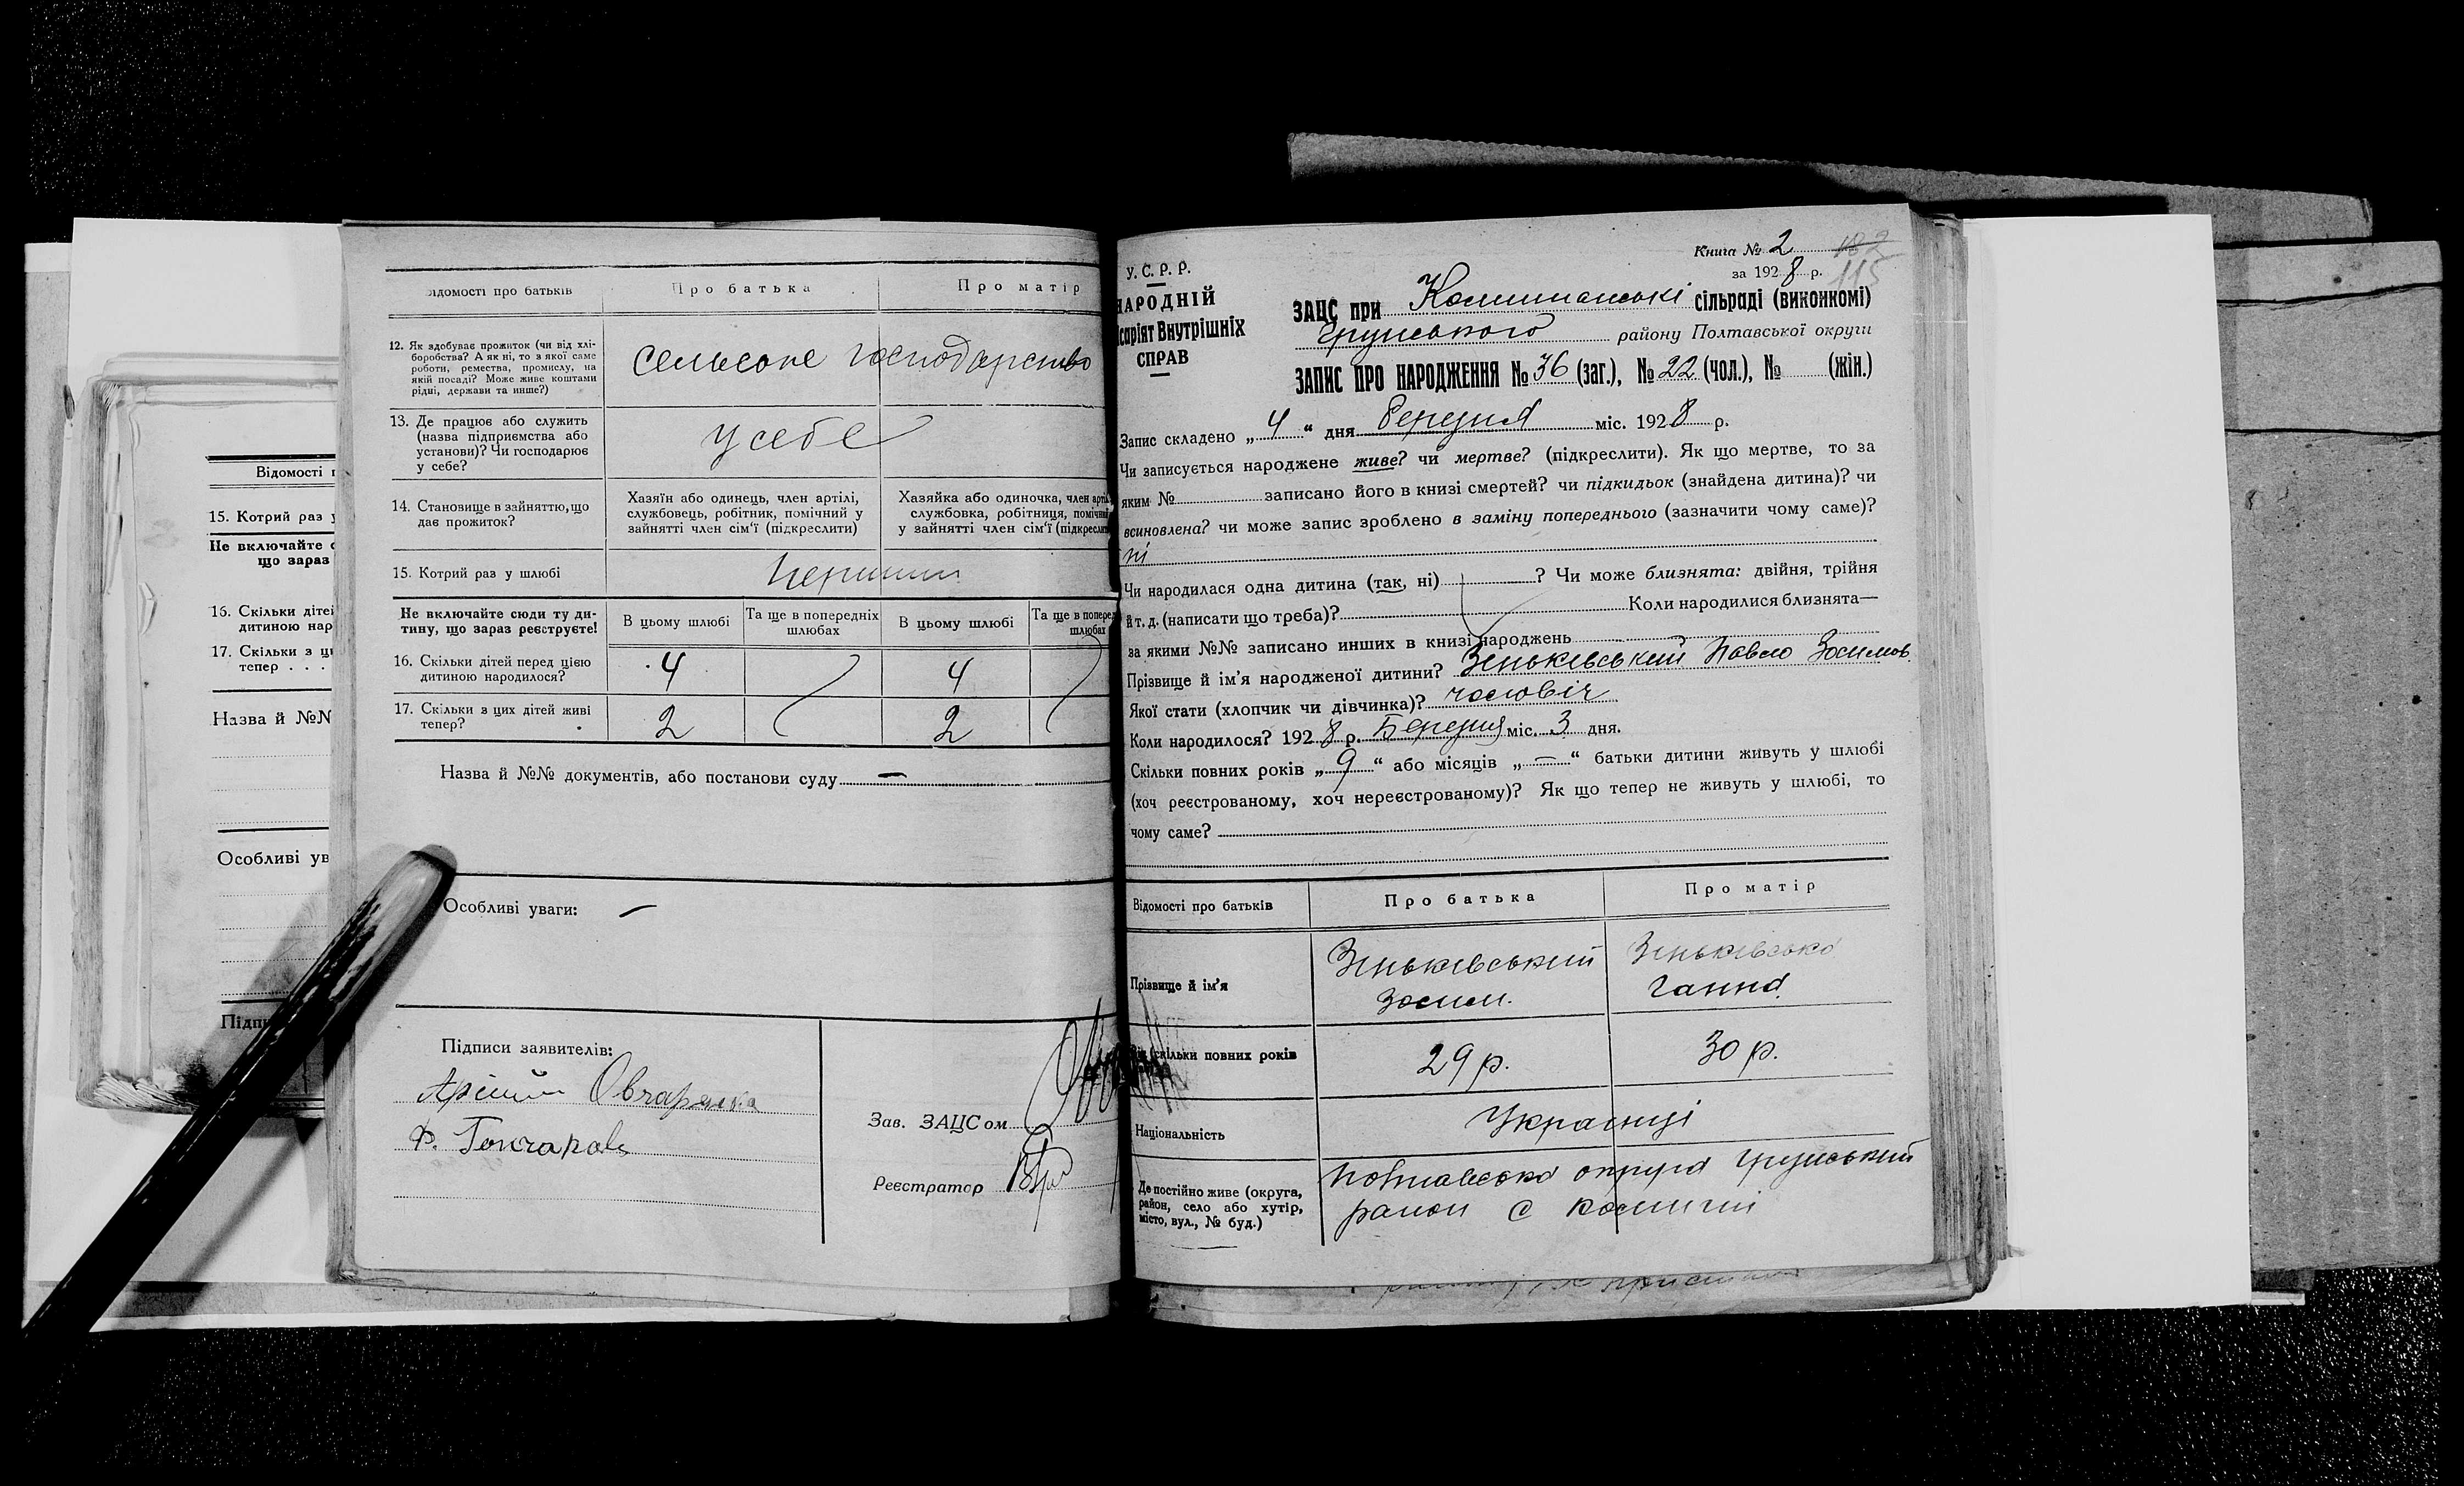 Відомості п
15. Котрий раз у
Не включайте с
що зараз
16. Скільки дітей
дитиною нар
17. Скільки з ци
тепер . . .
Назва й №№
Особливі ув
Підпи
ідомості про батьків
Про батька
Про матір
12. Як здобуває прожиток (чи від хлі-
боробства? А як ні, то з якої саме
роботи, ремества, промислу, на
якій посаді? Може живе коштами
рідні, держави та инше?)
сельське господарство
13. Де працює або служить
(назва підприємства або
установи)? Чи господарює
у себе?
у себе
14. Становище в зайняттю, що
дає прожиток?
Хазяїн або одинець, член артілі,
службовець, робітник, помічний у
зайнятті член сім'ї (підкреслити)
Хазяйка або одиночка, член артіл
службовка, робітниця, помічни
у зайнятті член сім'ї (підкресли
15. Котрий раз у шлюбі
перший
Не включайте сюди ту ди-
тину, що зараз реєструєте!
В цьому шлюбі
Та ще в попередніх
шлюбах
В цьому шлюбі
Та ще в поперед
шлюбах
16. Скільки дітей перед цією
дитиною народилося?
4
4
17. Скільки з цих дітей живі
тепер?
2
2
Назва й №№ документів, або постанови суду —
Особливі уваги: —
Підписи заявителів:
Овчаренка
Ф. Гончаров
Зав. ЗАЦСом
Реєстратор
Книга № 2
115
за 1928 р.
У. С. Р. Р.
НАРОДНІЙ
ісаріят Внутрішніх
СПРАВ
ЗАЦС при сільраді (виконкомі)
Грунського району Полтавської округи
ЗАПИС ПРО НАРОДЖЕННЯ № 36 (заг.), № 22 (чол.), № (жін.)
Запис складено „4" дня Березня міс. 1928 р.
Чи записується народжене живе? чи мертве? (підкреслити). Як що мертве, то за
яким № записано його в книзі смертей? чи підкидьок (знайдена дитина)? чи
всиновлена? чи може запис зроблено в заміну попереднього (зазначити чому саме)?
ні
Чи народилася одна дитина (так, ні) ? Чи може близнята: двійня, трійня
й т. д. (написати що треба)? Коли народилися близнята—
за якими №№ записано инших в книзі народжень
Прізвище й ім'я народженої дитини? Зеньківський Павло Зосимов
Якої стати (хлопчик чи дівчинка)? чоловіч
Коли народилося? 1928 р. Березня міс. 3 дня.
Скільки повних років „9" або місяців „—" батьки дитини живуть у шлюбі
(хоч реєстрованому, хоч нереєстрованому)? Як що тепер не живуть у шлюбі, то
чому саме?
Відомості про батьків
Про батька
Про матір
Прізвище й ім'я
Зеньківський
Зосим.
Зеньківська
Ганна.
скільки повних років
29 р.
30 р.
Національність
Українці
Де постійно живе (округа,
район, село або хутір,
місто, вул., № буд.)
Полтавська округа Грунський
район с